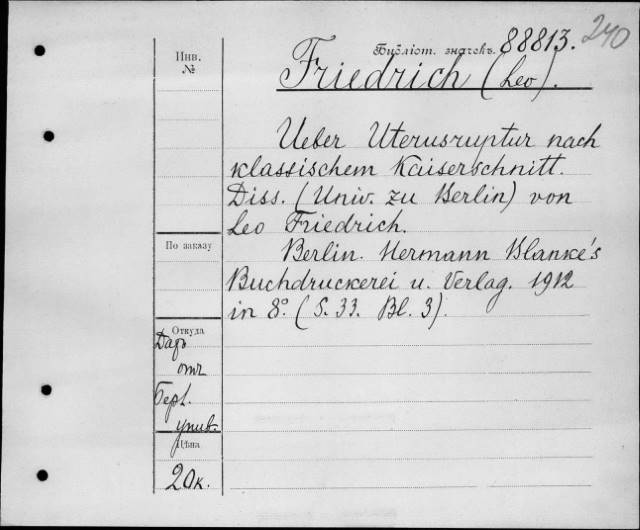 240
Библіот. значекъ. 88813.
Инв.
№
Friedrich (Leo).
Ueber Uterusruptur nach
klassischem Kaiserschnitt.
Diss. (Univ. zu Berlin) von
Leo Friedrich.
Berlin. Hermann Blanke's
Buchdruckerei u. Verlag. 1912
in 8º. (S. 33. Bl. 3).
По заказу
Откуда
Даръ
отъ
Берл.
унив.
Цѣна
20к.